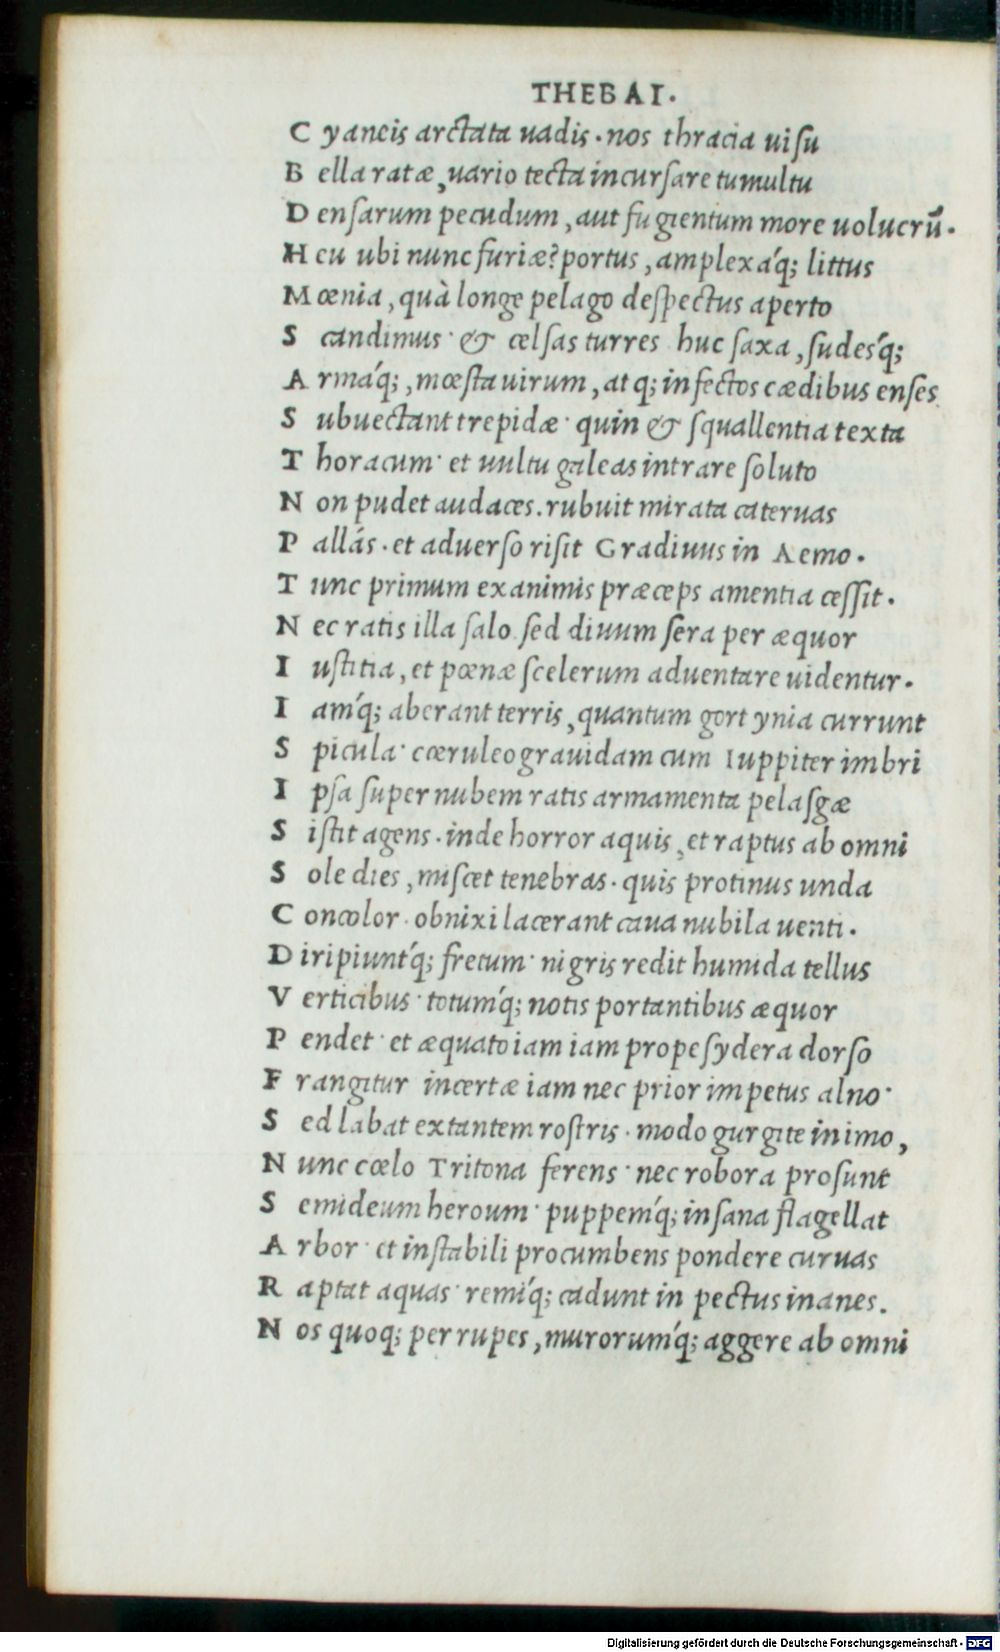 THEBAI.
C yaneis arctata uadis. nos thracia uisu
B ella ratæ, uario tecta incursare tumultu
D ensarum pecudum, aut fugientum more uolucrū.
H eu ubi nunc furiæ? portus, amplexáq; littus
M œnia, quà longe pelago despectus aperto
S candimus· & celsas turres huc saxa, sudesq́;
A rmáq;, mœsta uirum, atq; infectos cædibus enses
S ubuectant trepidæ· quin & squallentia texta
T horacum· et uultu galeas intrare soluto
N on pudet audaces. rubuit mirata cateruas
P allás. et aduerso risit Gradiuus in Aemo.
T unc primum ex animis præceps amentia cessit.
N ec ratis illa salo. sed diuum sera per æquor
I ustitia, et pœnæ scelerum aduentare uidentur.
I amq́; aberant terris, quantum gortynia currunt
S picula· cœruleo grauidam cum Iuppiter imbri
I psa super nubem ratis armamenta pelasgæ
S istit agens. inde horror aquis, et raptus ab omni
S ole dies, miscet tenebras. quis protinus unda
C oncolor. obnixi lacerant caua nubila uenti.
D iripiuntq́; fretum· nigris redit humida tellus
V erticibus· totumq́; notis portantibus æquor
P endet· et æquato iam iam prope sydera dorso
F rangitur incertæ iam nec prior impetus alno·
S ed labat extantem rostris. modo gurgite in imo,
N unc cœlo Tritona ferens· nec robora prosunt
S emideum heroum· puppemq́; insana flagellat
A rbor· et instabili procumbens pondere curuas
R aptat aquas· remiq́; cadunt in pectus inanes.
N os quoq; per rupes, murorumq́; aggere ab omni
Digitalisierung gefördert durch die Deutsche Forschungsgemeinschaft - DFG